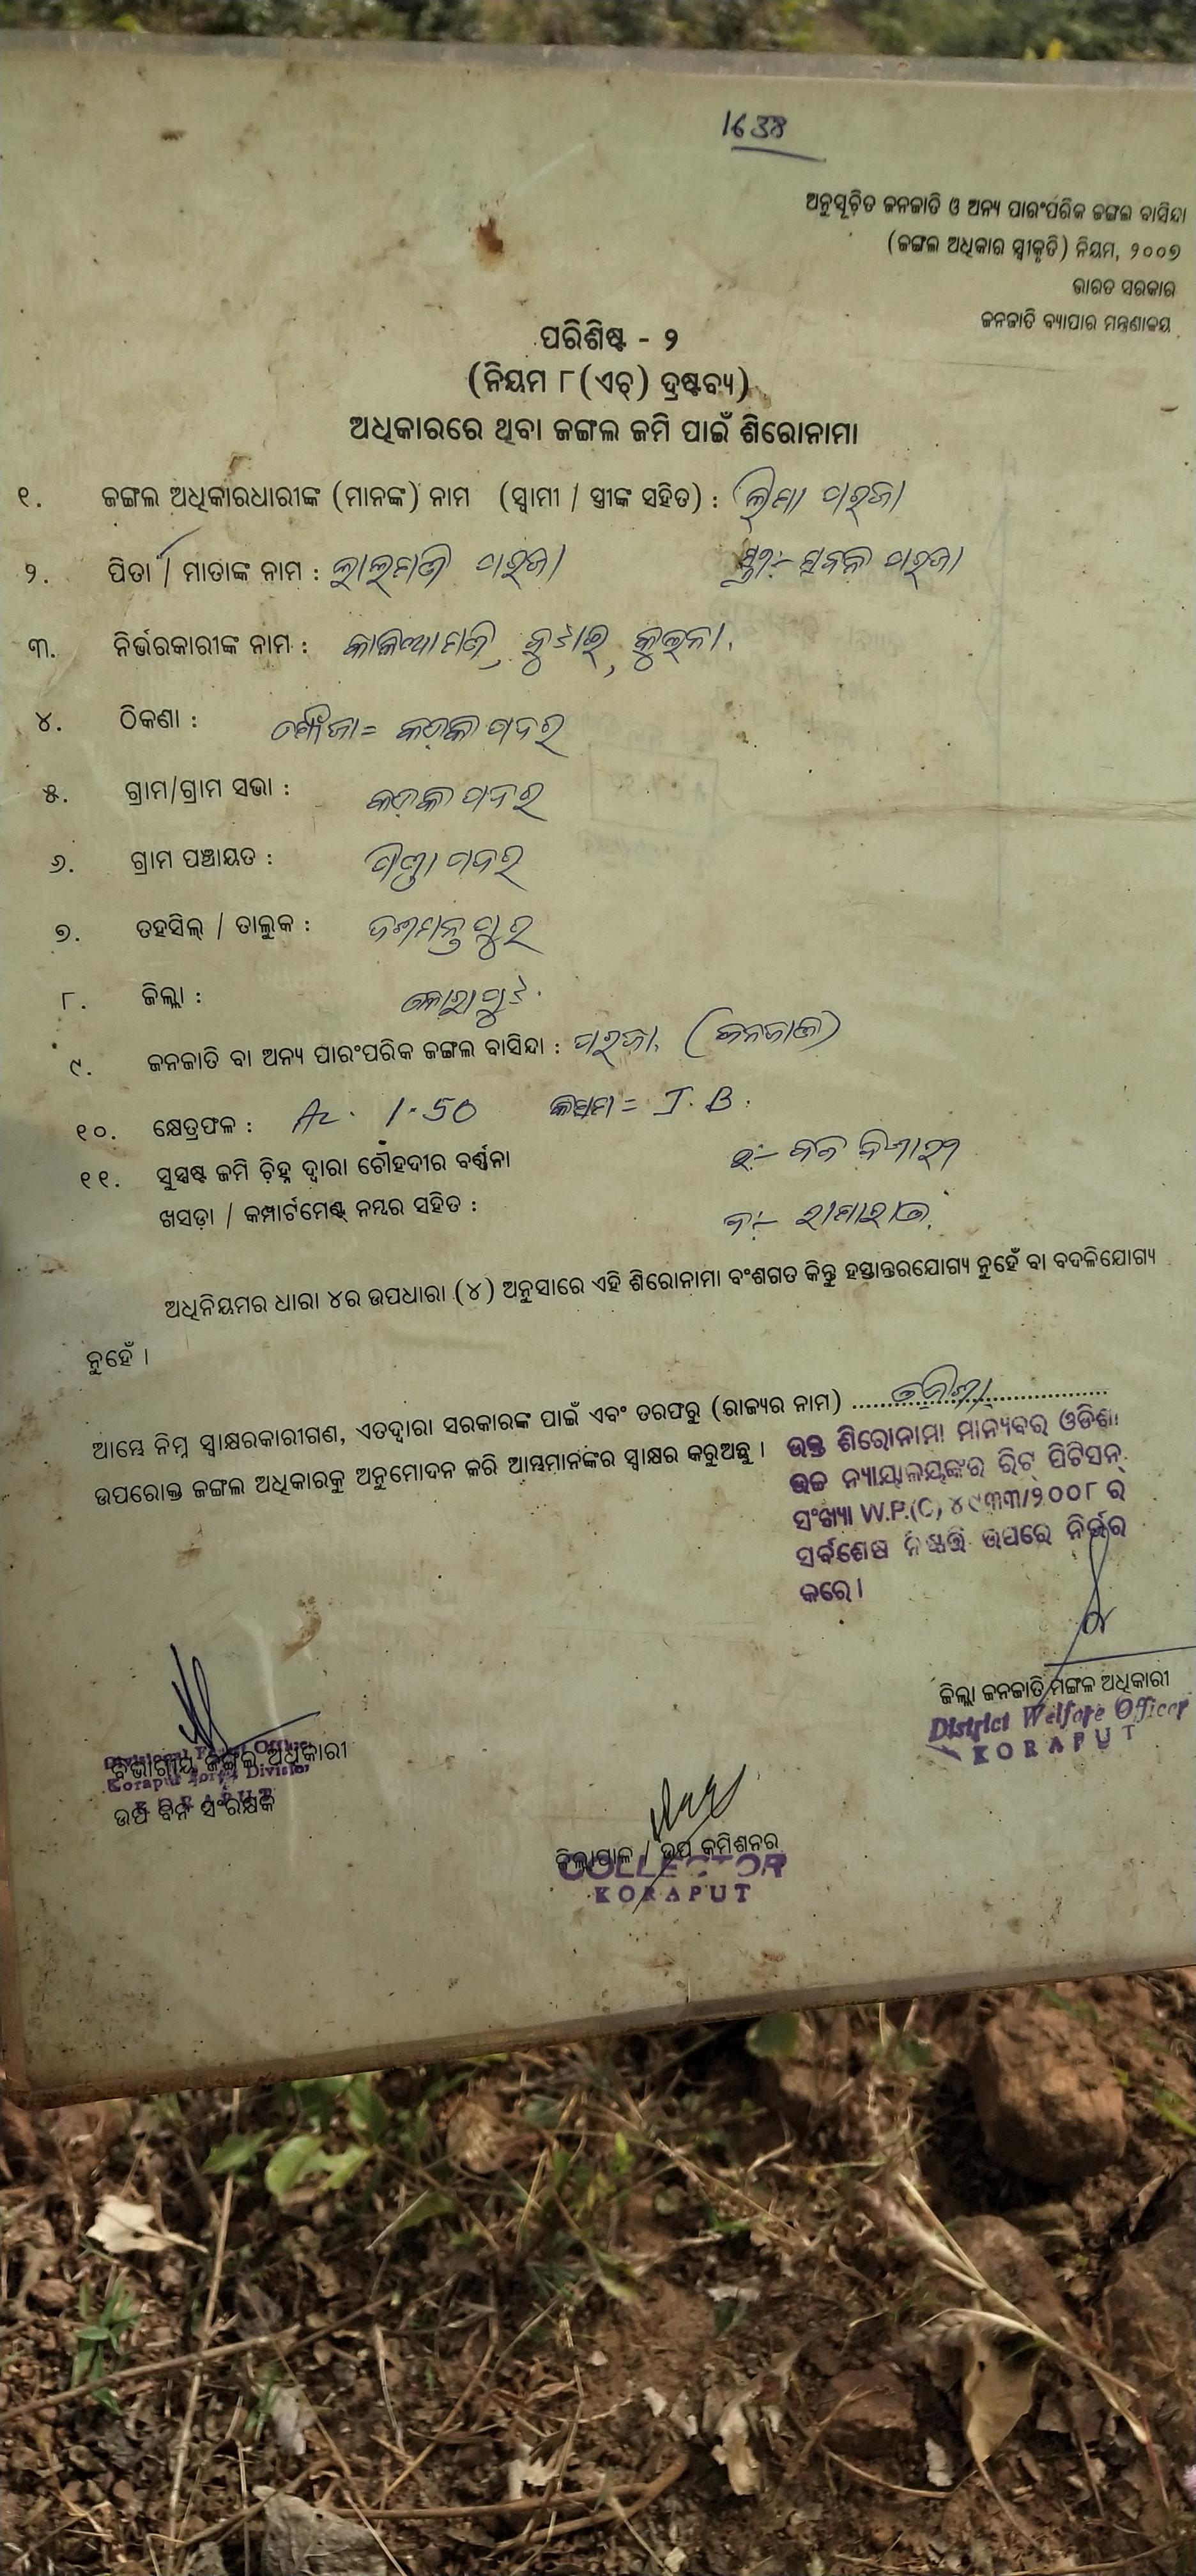 1638
ଅନୁସୂଚିତ ଜନଜାତି ଓ ଅନ୍ୟ ପାରଂପରିକ ଜଙ୍ଗଲ ବାସିନ୍ଦା
(ଜଙ୍ଗଲ ଅଧିକାର ସ୍ୱୀକୃତି) ନିୟମ, ୨୦୦୭
ଭାରତ ସରକାର
ଜନଜାତି ବ୍ୟାପାର ମନ୍ତ୍ରଣାଳୟ
ପରିଶିଷ୍ଟ - ୨
(ନିୟମ ୮(ଏଚ୍) ଦ୍ରଷ୍ଟବ୍ୟ)
ଅଧିକାରରେ ଥିବା ଜଙ୍ଗଲ ଜମି ପାଇଁ ଶିରୋନାମା
୧. ଜଙ୍ଗଲ ଅଧିକାରଧାରୀଙ୍କ (ମାନଙ୍କ) ନାମ (ସ୍ୱାମୀ / ସ୍ତ୍ରୀଙ୍କ ସହିତ) : ପରଜା
୨. ପିତା / ମାତାଙ୍କ ନାମ : ପରଜା ସ୍ତ୍ରୀ:- ପରଜା
୩. ନିର୍ଭରକାରୀଙ୍କ ନାମ :
୪. ଠିକଣା : ମୌଜା= କଡ଼କ ପଦର
୫. ଗ୍ରାମ/ଗ୍ରାମ ସଭା : କଡ଼କ ପଦର
୬. ଗ୍ରାମ ପଞ୍ଚାୟତ : ପଦର
୭. ତହସିଲ୍ / ତାଲୁକ : ଦଶମନ୍ତପୁର
୮. ଜିଲ୍ଲା : କୋରାପୁଟ.
୯. ଜନଜାତି ବା ଅନ୍ୟ ପାରଂପରିକ ଜଙ୍ଗଲ ବାସିନ୍ଦା : ପରଜା. (ଜନଜାତି)
୧୦. କ୍ଷେତ୍ରଫଳ : Ac. 1.50 କିସମ= J.B.
୧୧. ସୁସ୍ପଷ୍ଟ ଜମି ଚିହ୍ନ ଦ୍ୱାରା ଚୌହଦୀର ବର୍ଣ୍ଣନା
ଖସଡ଼ା / କମ୍ପାର୍ଟମେଣ୍ଟ୍ ନମ୍ବର ସହିତ :
ଅଧିନିୟମର ଧାରା ୪ର ଉପଧାରା (୪) ଅନୁସାରେ ଏହି ଶିରୋନାମା ବଂଶଗତ କିନ୍ତୁ ହସ୍ତାନ୍ତରଯୋଗ୍ୟ ନୁହେଁ ବା ବଦଳିଯୋଗ୍ୟ
ନୁହେଁ ।
ଆମ୍ଭେ ନିମ୍ନ ସ୍ୱାକ୍ଷରକାରୀଗଣ, ଏତଦ୍ୱାରା ସରକାରଙ୍କ ପାଇଁ ଏବଂ ତରଫରୁ (ରାଜ୍ୟର ନାମ) ଓଡ଼ିଶା
ଉପରୋକ୍ତ ଜଙ୍ଗଲ ଅଧିକାରକୁ ଅନୁମୋଦନ କରି ଆମ୍ଭମାନଙ୍କର ସ୍ୱାକ୍ଷର କରୁଅଛୁ ।
ଉକ୍ତ ଶିରୋନାମା ମାନ୍ୟବର ଓଡିଶା
ଉଚ୍ଚ ନ୍ୟାୟାଳୟଙ୍କର ରିଟ୍ ପିଟିସନ୍
ସଂଖ୍ୟା W.P.(C) ୪୯୩୩/୨୦୦୮ ର
ସର୍ବଶେଷ ନିଷ୍ପତ୍ତି ଉପରେ ନିର୍ଭର
କରେ।
ଜିଲ୍ଲା ଜନଜାତି ମଙ୍ଗଳ ଅଧିକାରୀ
District Welfare Officer
KORAPUT
ବିଭାଗୀୟ ଜଙ୍ଗଲ ଅଧିକାରୀ
Divisional Forest Officer
Koraput Forest Division
KORAPUT
ଉପ ବନ ସଂରକ୍ଷକ
ଜିଲ୍ଲାପାଳ / ଉପ କମିଶନର
COLLECTOR
KORAPUT